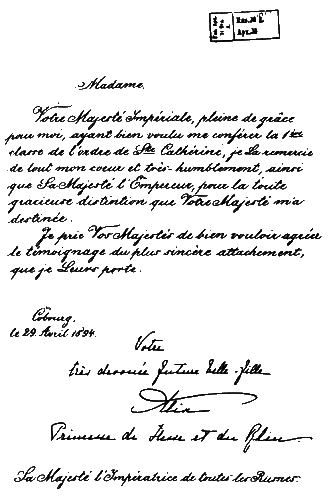 Madame.
Votre Majesté Impériale, pleine de grâce
pour moi, ayant bien voulu me conférer la 1ère
classe de l'ordre de Ste Cathérine, je La remercie
de tout mon coeur et très-humblement, ainsi
que Sa Majesté l'Empereur, pour la toute
gracieuse distintion que Votre Majesté m'a
destinée.
Je prie Vos Majestés de bien vouloir agréer
le témoignage du plus sincère attachement,
que je Leurs porte.
Cobourg.
le 29 Avril 1894.
Votre
très devouée future belle-fille
Alix
Princesse de Hesse et du Rhin
Sa Majesté l'Impératrice de toutes les Russies.